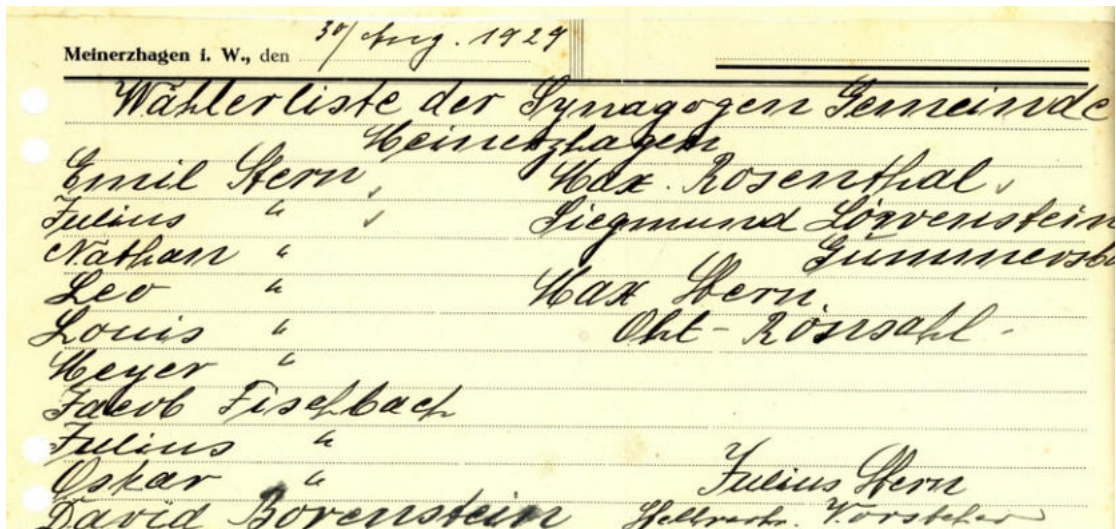 Meinerzhagen i. W., den 30/Aug. 1929
Wählerliste der Synagogen Gemeinde
Meinerzhagen
Emil Stern
Julius "
Nathan "
Leo "
Louis "
Meyer "
Jacob Fischbach
Julius "
Oskar "
David Borenstein
Max. Rosenthal
Siegmund Löwenstein
Gummersba
Max Stern
Ohl - Rönsahl -
Julius Stern
Stellvertr. Vorsteher